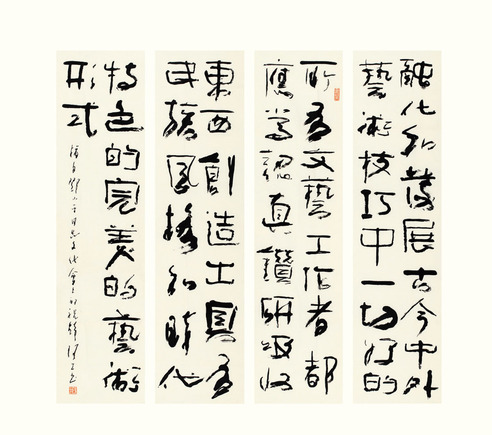 融化和發展古今中外
藝術技巧中一切好的
所有文藝工作者都
應當認真鑽研吸收
東西創造出具有
民族風格和時代
特色的完美的藝術
形式